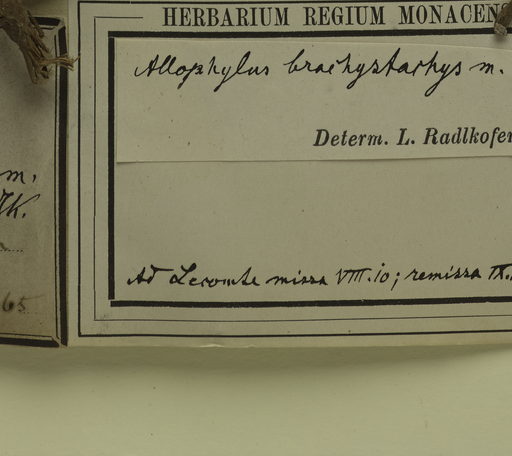 HERBARIUM REGIUM MONACENS
Allophylus brachystachys m.
Determ. L. Radlkofer
m.
Ad Lecomte missa VIII.10; remissa IX.
65